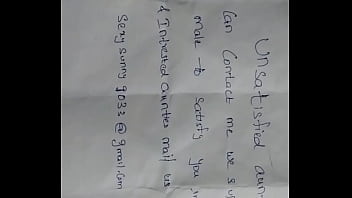 Unsatisfied aun
Can Contact me we su
male to satisfy you in
& Intrested aunties mail us
Sexy sunny 9033@gmail.com